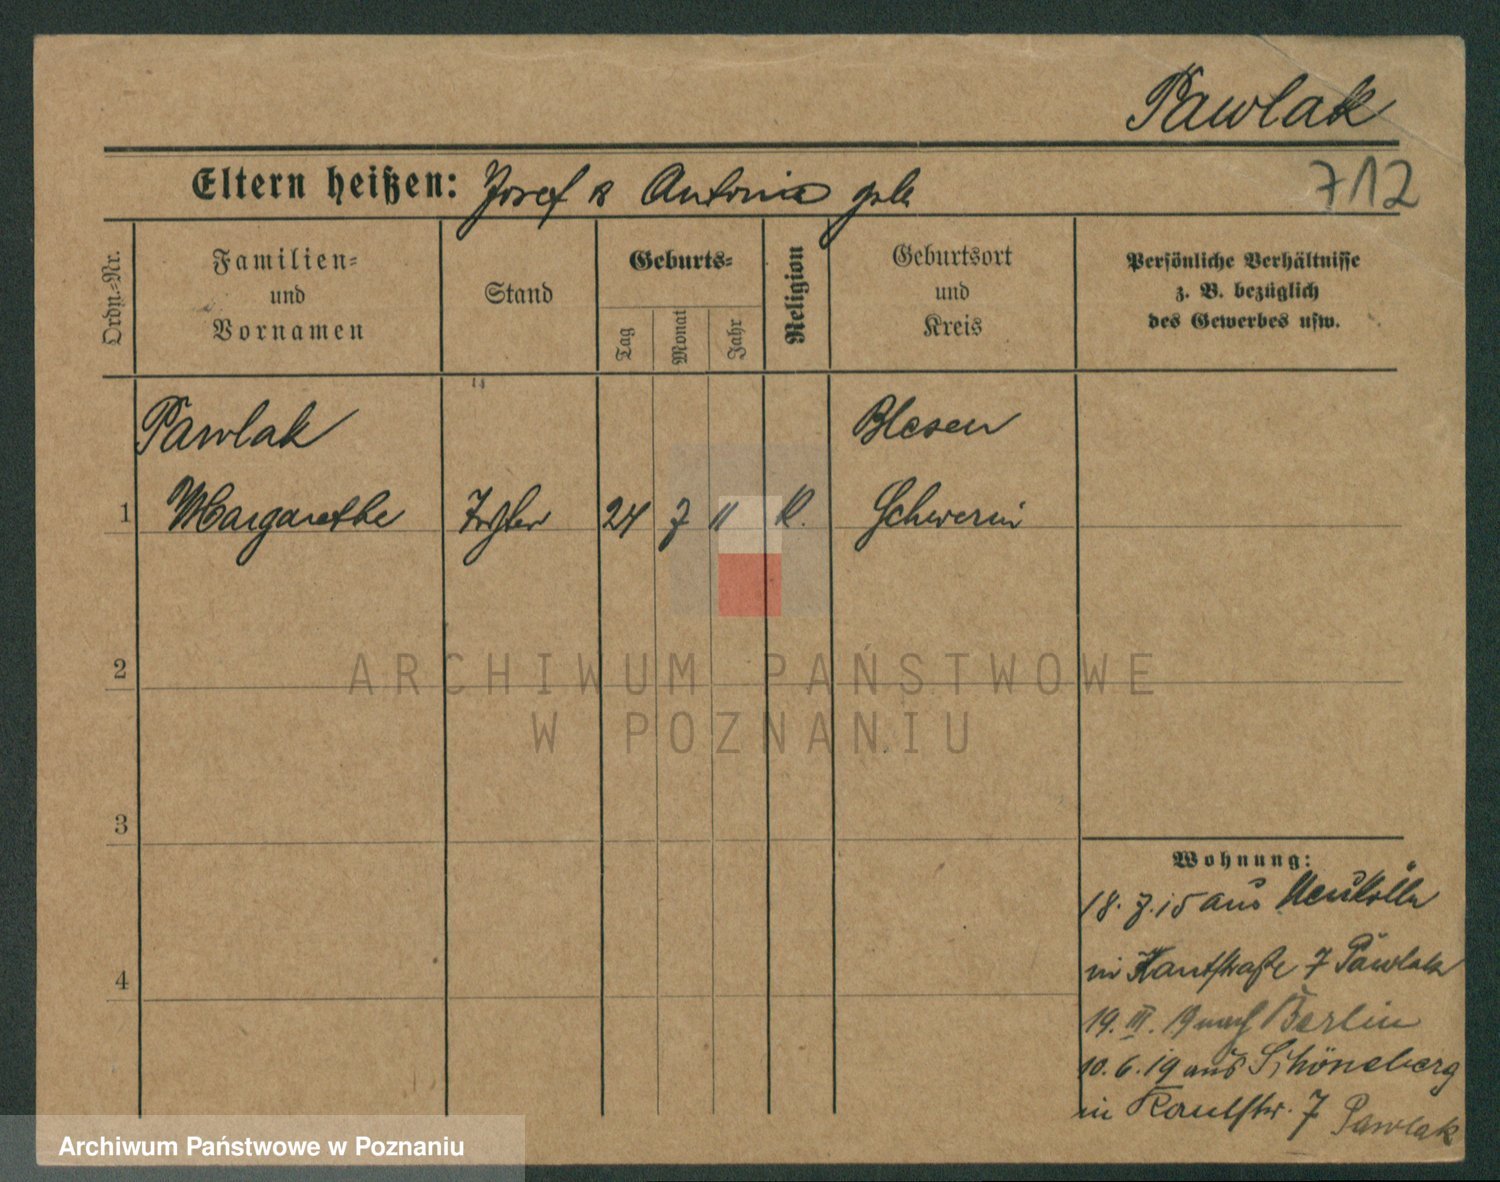 Pawlak
Eltern heißen: Josef & Antonie geb
712
Ordn.-Nr.
Familien-
und
Vornamen
Stand
Geburts-
Tag
Monat
Jahr
Religion
Geburtsort
und
Kreis
Persönliche Verhältnisse
z. B. bezüglich
des Gewerbes usw.
Pawlak
Blesen
1 Margarethe 24 7 11 K. Schwerin
2
3
4
ARCHIWUM PAŃSTWOWE
W POZNANIU
Wohnung:
18.7.15 aus Neukölln
in Kantstraße 7 Pawlak
19. III. 19 nach Berlin
10.6.19 aus Schöneberg
in Kantstr. 7 Pawlak
Archiwum Państwowe w Poznaniu